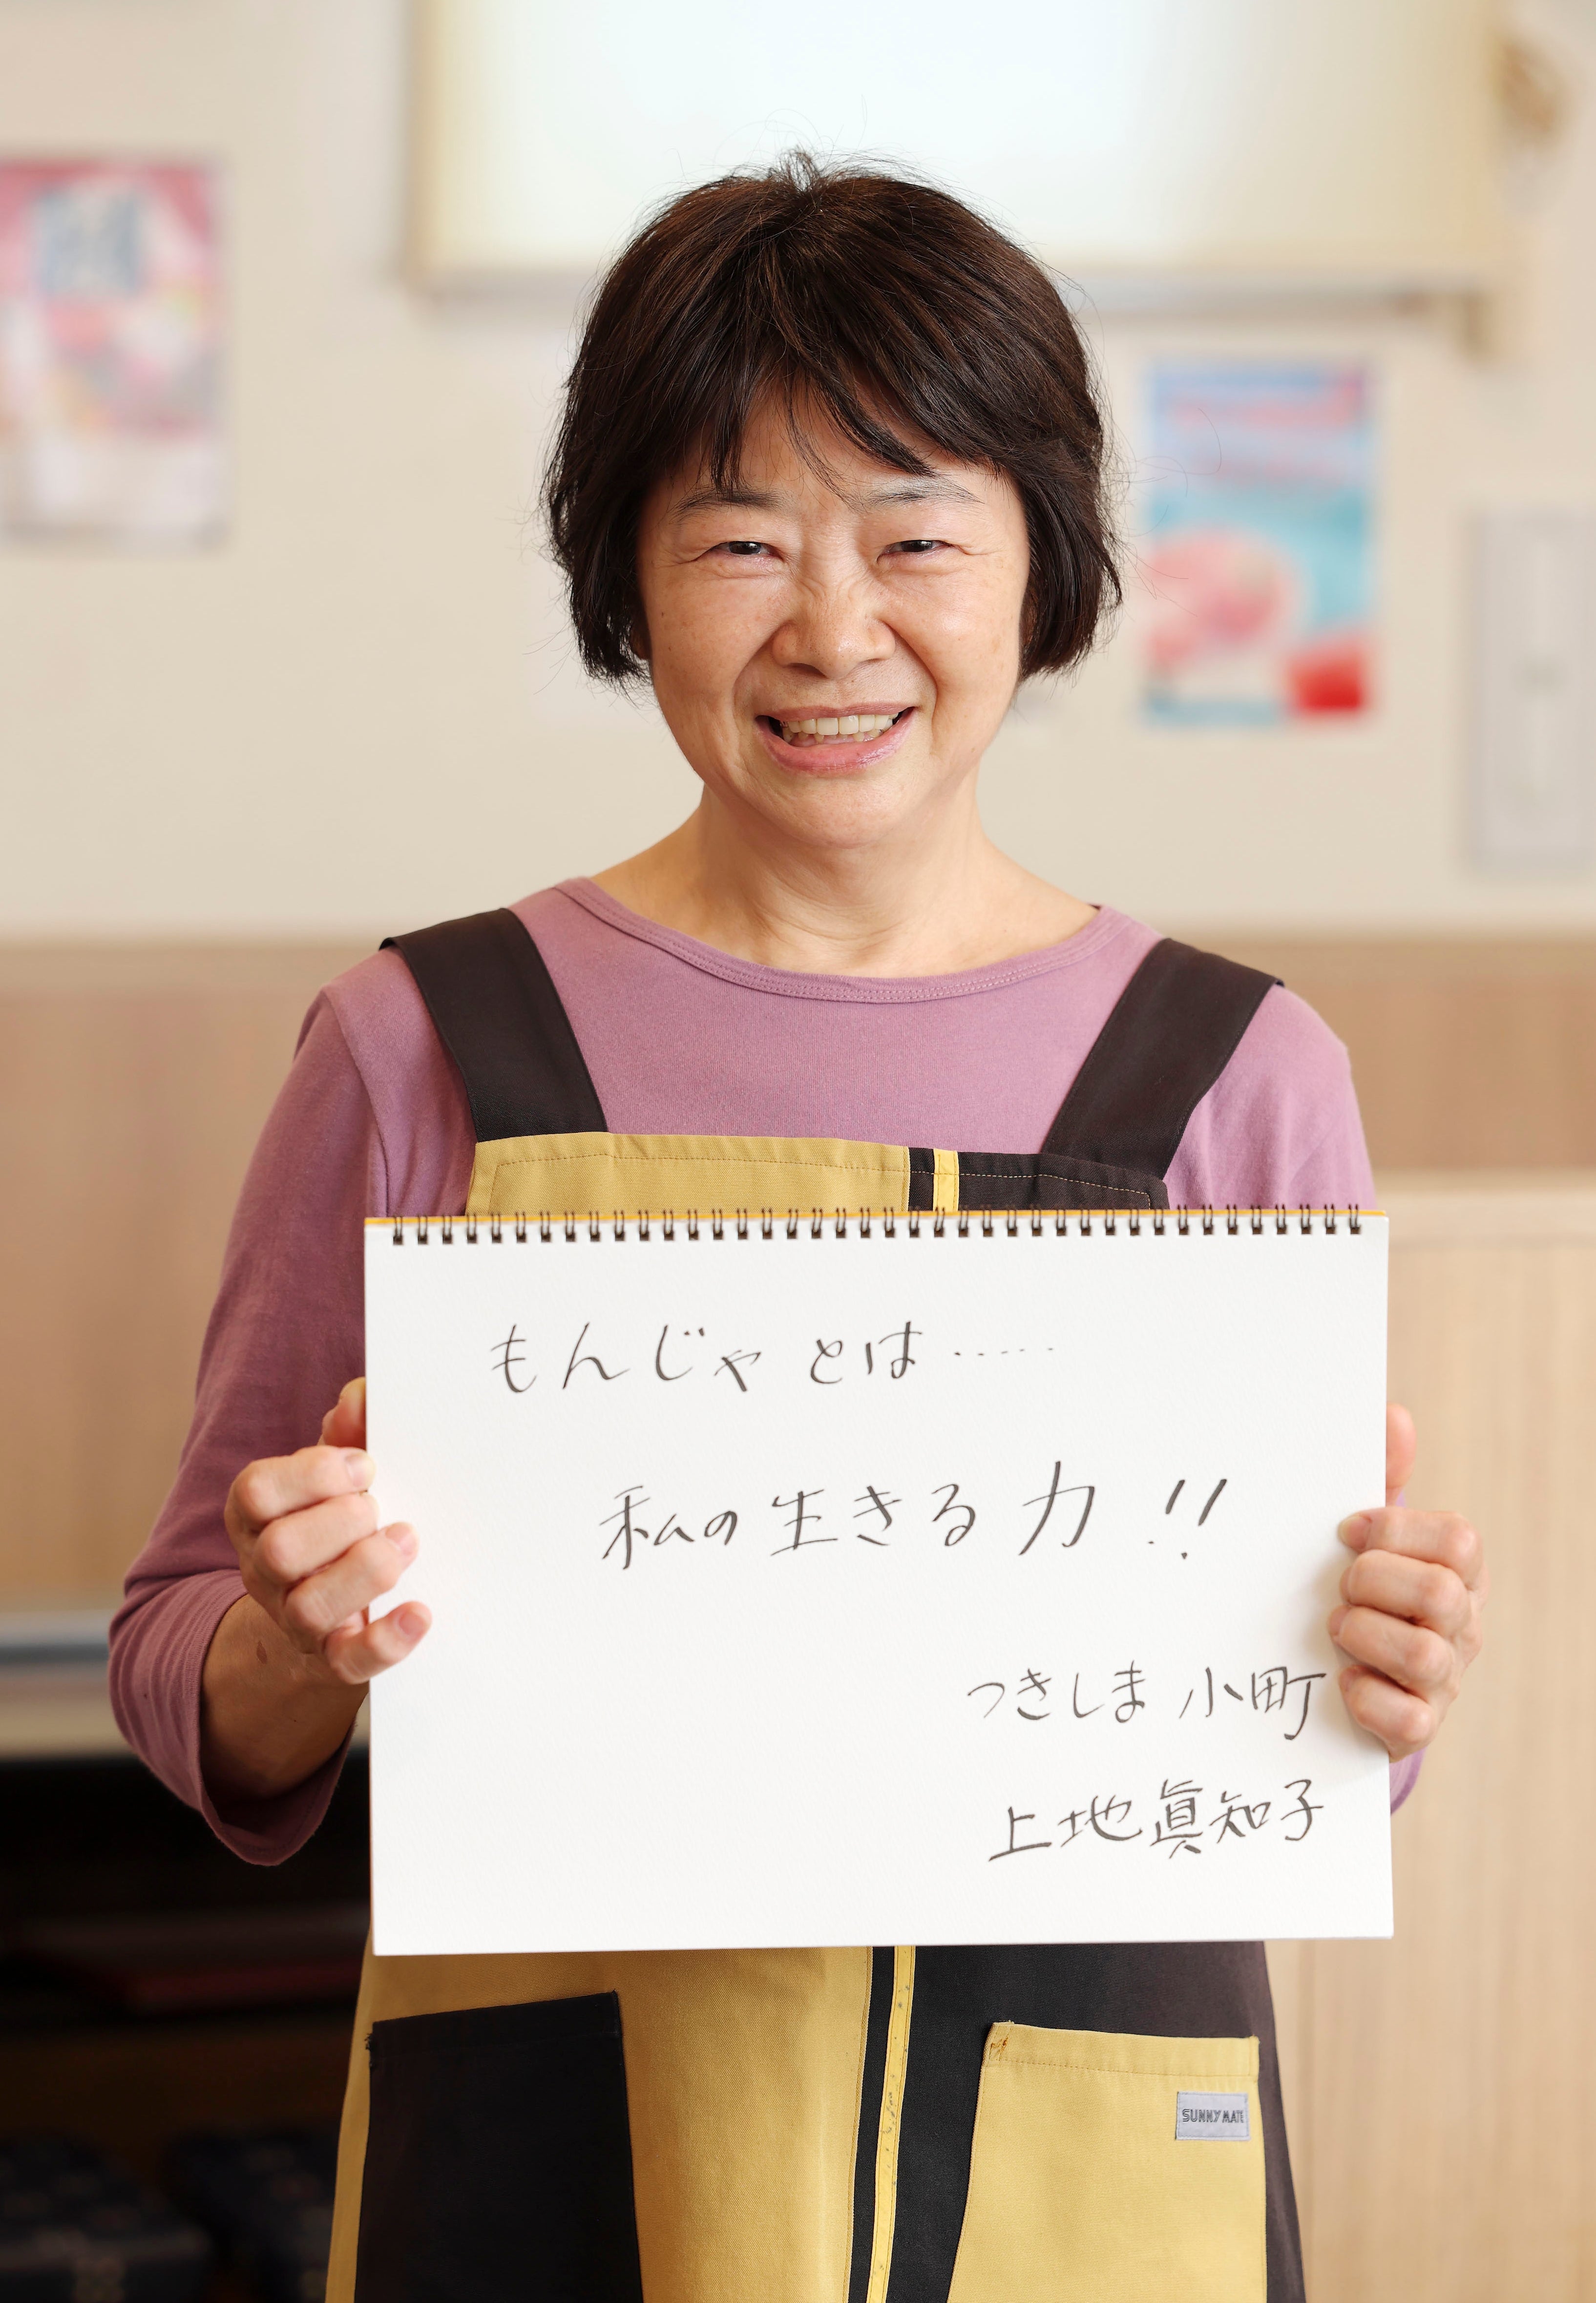 もんじゃとは……
私の生きる力!!
つきしま小町
上地眞知子
SUNNY MATE